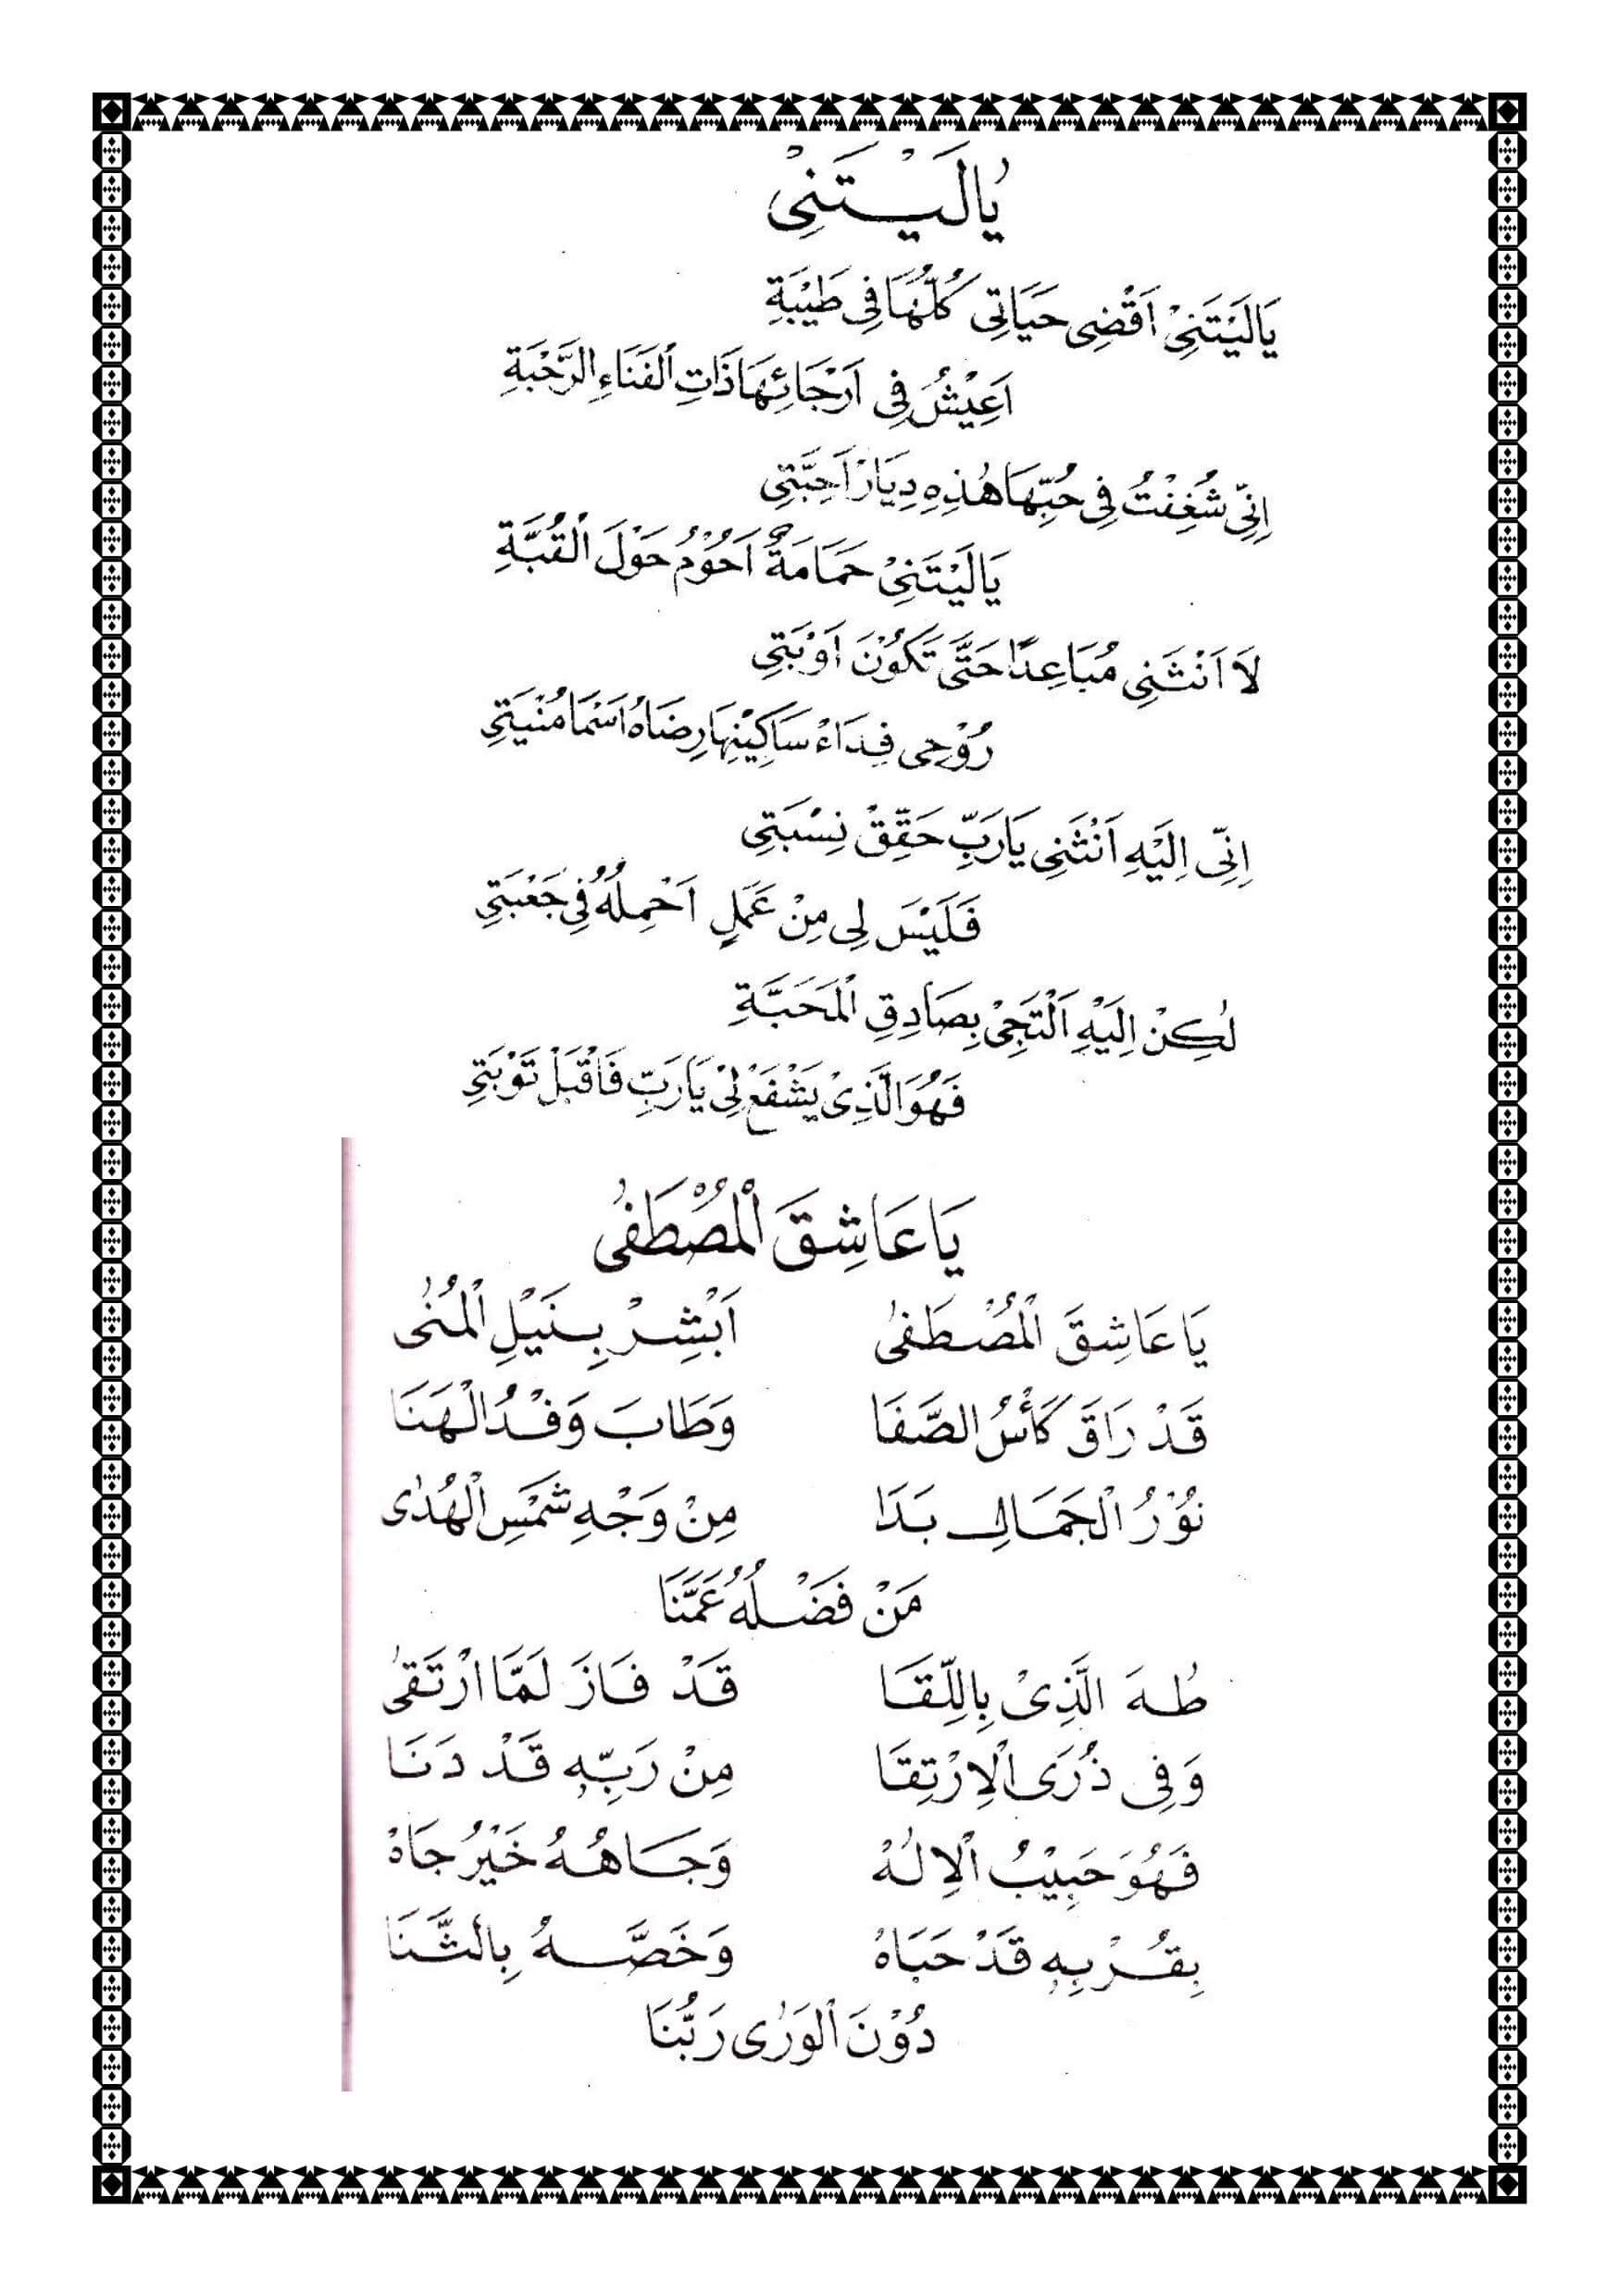 يٰالَيْتَنِيْ
يَالَيْتَنِيْ اَقْضِى حَيَاتِى كُلَّهَا فِى طَيْبَةِ
اَعِيْشُ فِى اَرْجَائِهَا ذَاتِ الْفَنَاءِ الرَّحْبَةِ
اِنِّى شُغِفْتُ فِى حُبِّهَا هٰذِهِ دِيَارْ اَحِبَّتِى
يَالَيْتَنِيْ حَمَامَةٌ اَحُوْمُ حَوْلَ الْقُبَّةِ
لَا اَنْثَنِى مُبَاعِدًا حَتَّى تَكُوْنَ اَوْبَتِى
رُوْحِى فِدَاءْ سَاكِيْنِهَا رِضَاهُ اَسْمَا مُنْيَتِى
اِنِّى اِلَيْهِ اَنْثَنِى يَارَبِّ حَقِّقْ نِسْبَتِى
فَلَيْسَ لِى مِنْ عَمَلٍ اَحْمِلُهُ فِى جَعْبَتِى
لٰكِنْ اِلَيْهِ اَلْتَجِىْ بِصَادِقِ الْمَحَبَّةِ
فَهُوَ الَّذِىْ يَشْفَعْ لِىْ يَارَبِّ فَاقْبَلْ تَوْبَتِى
يَا عَاشِقَ الْمُصْطَفٰى
يَا عَاشِقَ الْمُصْطَفٰى اَبْشِرْ بِنَيْلِ الْمُنٰى
قَدْ رَاقَ كَأْسُ الصَّفَا وَطَابَ وَفْدُ الْهَنَا
نُوْرُ الْجَمَالِ بَدَا مِنْ وَجْهِ شَمْسِ الْهُدٰى
مَنْ فَضْلُهُ عَمَّنَا
طٰهَ الَّذِىْ بِاللِّقَا قَدْ فَازَ لَمَّا ارْتَقٰى
وَفِى ذُرَى الْاِرْتِقَا مِنْ رَبِّهِ قَدْ دَنَا
فَهُوَ حَبِيْبُ الْاِلٰهْ وَجَاهُهُ خَيْرُ جَاهْ
بِقُرْبِهِ قَدْ حَبَاهْ وَخَصَّهُ بِالثَّنَا
دُوْنَ الْوَرٰى رَبُّنَا